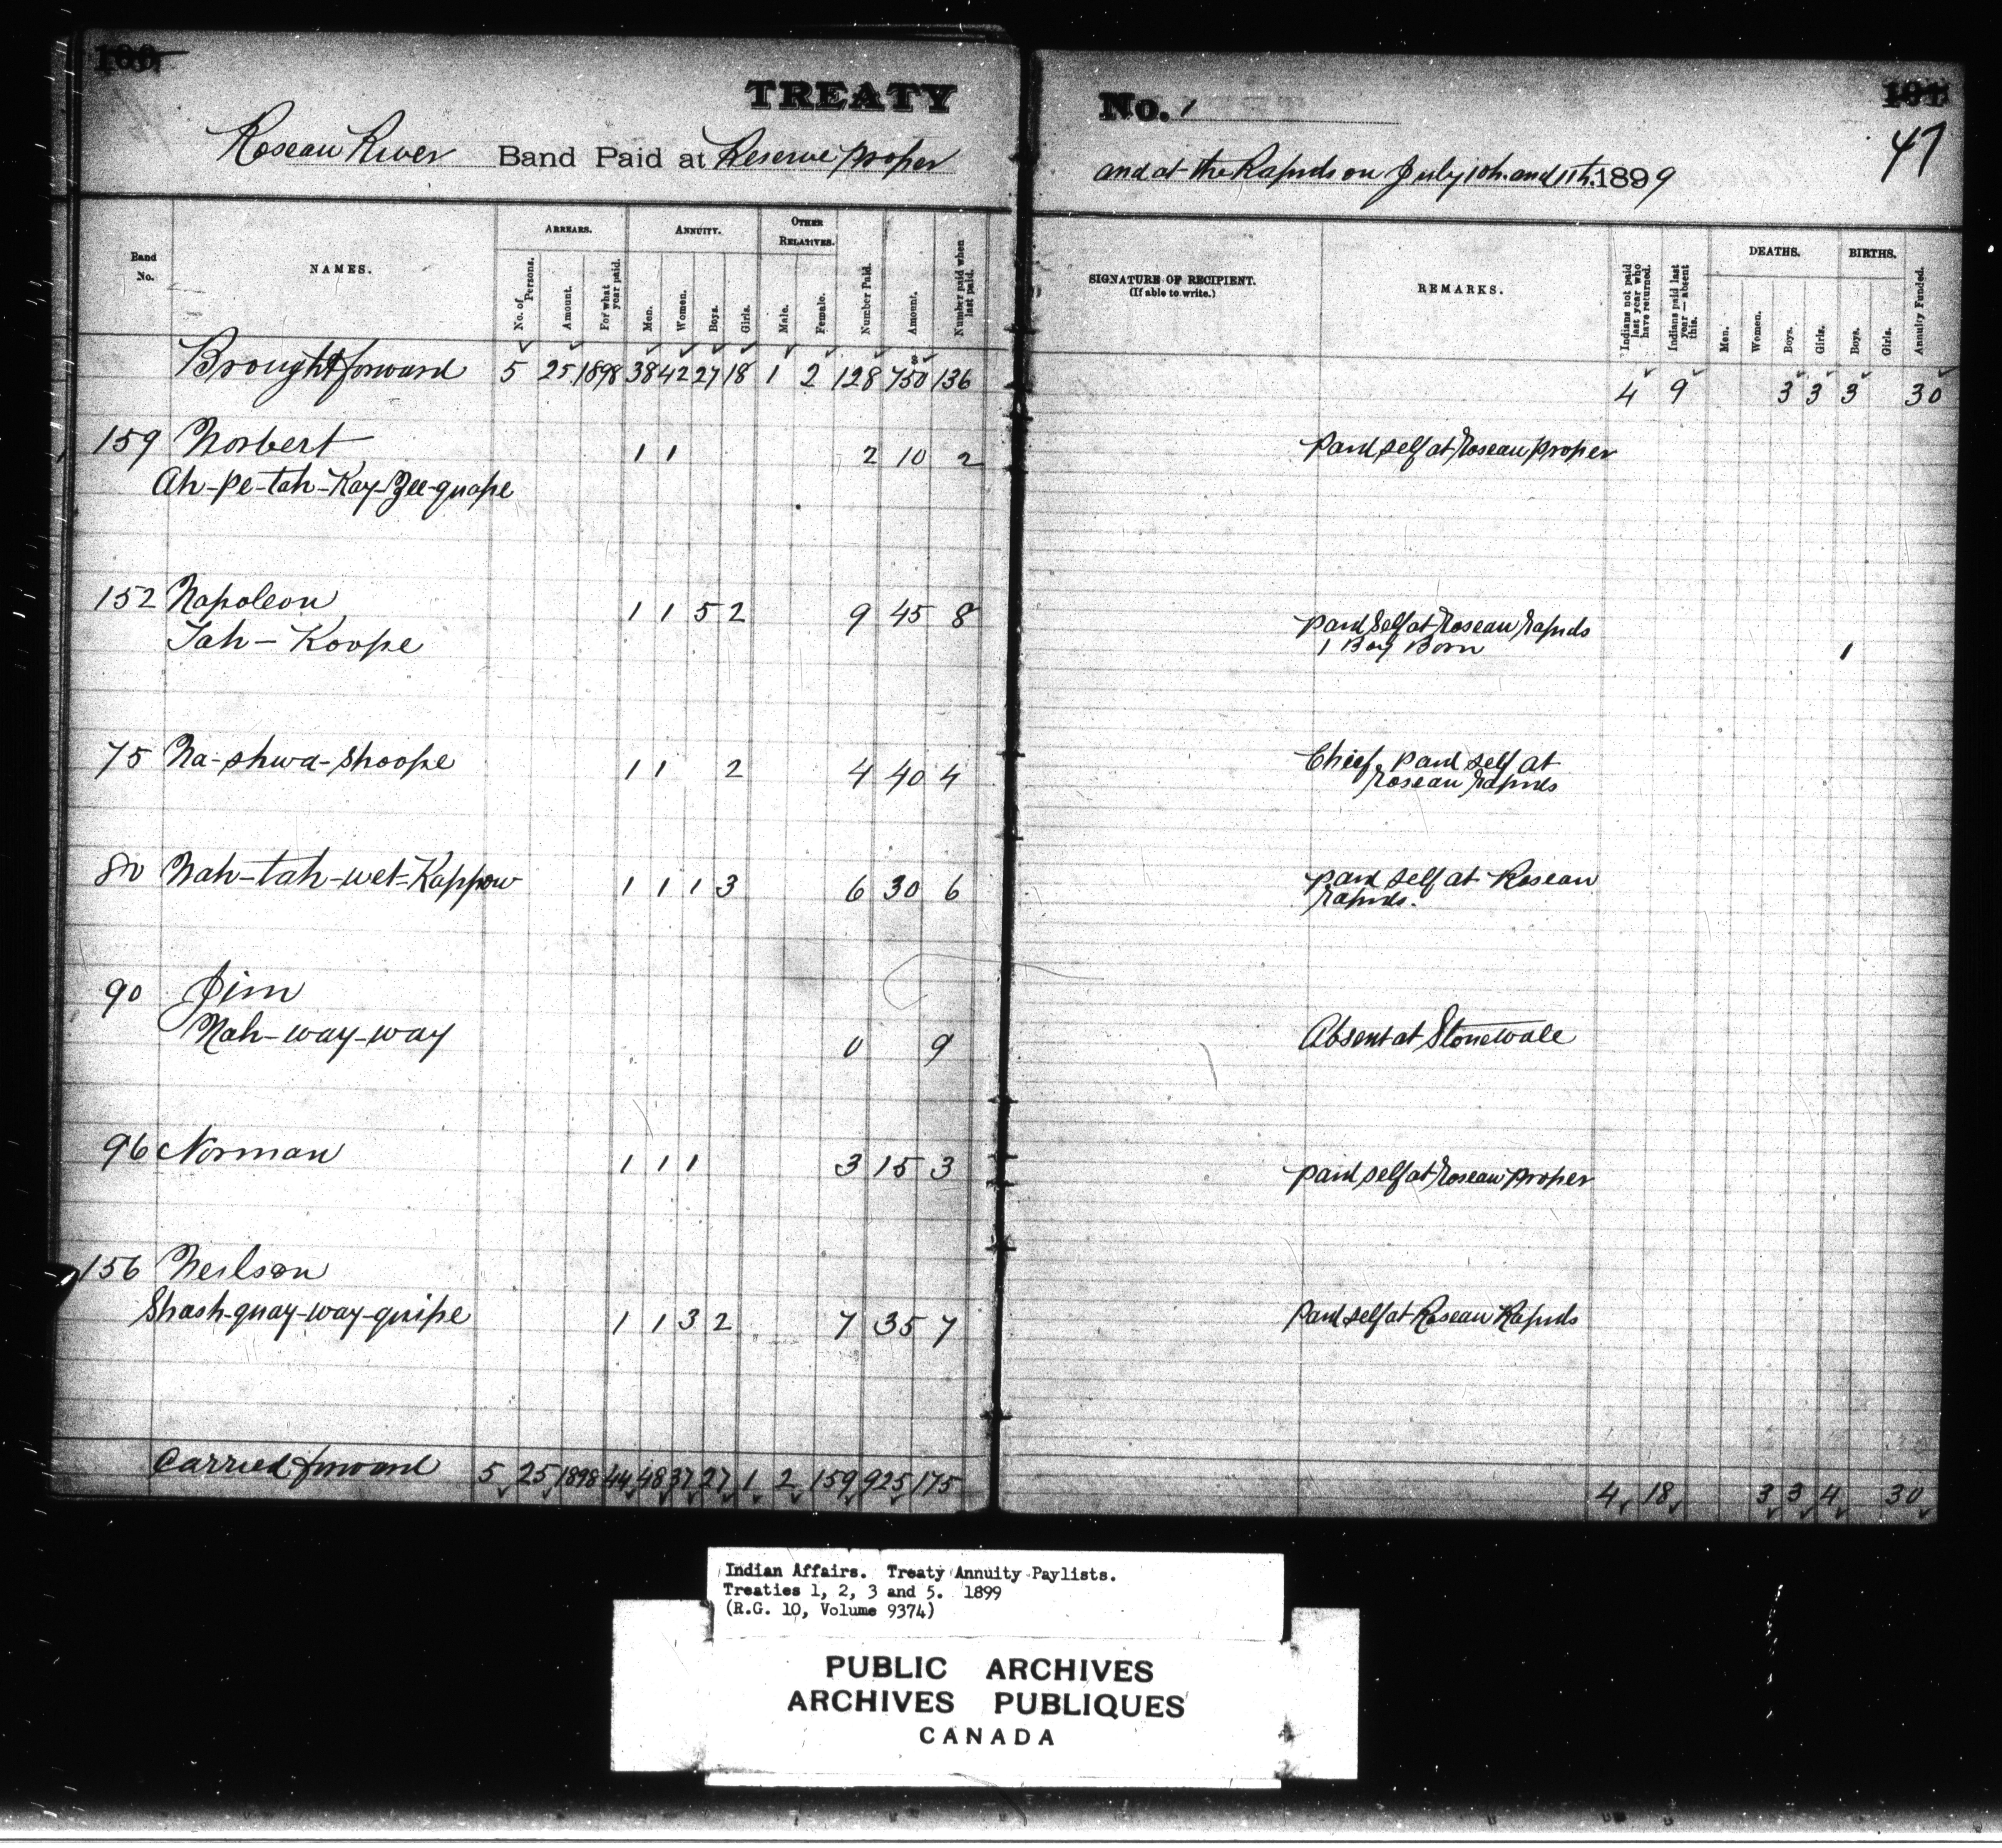 100
TREATY
Roseau River Band Paid at Reserve proper
Band No.
NAMES.
ARREARS.
No. of Persons.
Amount.
For what year paid.
ANNUITY.
Men.
Women.
Boys.
Girls.
OTHER RELATIVES.
Male.
Female.
Number Paid.
Amount.
Number paid when last paid.
Brought forward 5 25 1898 38 42 27 18 1 2 128 $ 750 136
159 Norbert 1 1 2 10 2
Ah-pe-tah-Kay-Zee-quape
152 Napoleon 1 1 5 2 9 45 8
Tah-Koope
75 Na-shwa-Shoope 1 1 2 4 40 4
80 Nah-tah-wet-Kappow 1 1 1 3 6 30 6
90 Jim
Nah-way-way 0 9
96 Norman 1 1 1 3 15 3
156 Neilson
Shash-quay-way-quipe 1 1 3 2 7 35 7
Carried forward 5 25 1898 44 48 37 27 1 2 159 925 175
No. 1
101
47
and at the Rapids on July 10th. and 11th. 1899
SIGNATURE OF RECIPIENT.
(If able to write.)
REMARKS.
Indians not paid last year who have returned.
Indians paid last year — absent this.
DEATHS.
Men.
Women.
Boys.
Girls.
BIRTHS.
Boys.
Girls.
Annuity Funded.
4 9 3 3 3 30
Paid self at Roseau proper
Paid Self at Roseau Rapids
1 Boy Born 1
Chief, paid self at
Roseau Rapids
Paid self at Roseau
Rapids.
Absent at Stonewall
Paid self at Roseau proper
Paid self at Roseau Rapids
4 18 3 3 4 30
Indian Affairs. Treaty Annuity Paylists.
Treaties 1, 2, 3 and 5. 1899
(R.G. 10, Volume 9374)
PUBLIC ARCHIVES
ARCHIVES PUBLIQUES
CANADA